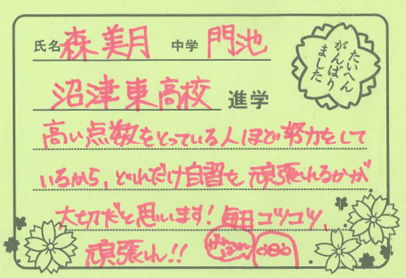 氏名 森 美月 中学 門池
たいへん
がんばり
ました
沼津東高校 進学
高い点数をとっている人ほど努力をして
いるから、どれだけ自習を頑張れるかが
大切だと思います！毎日コツコツ、
頑張れ!!